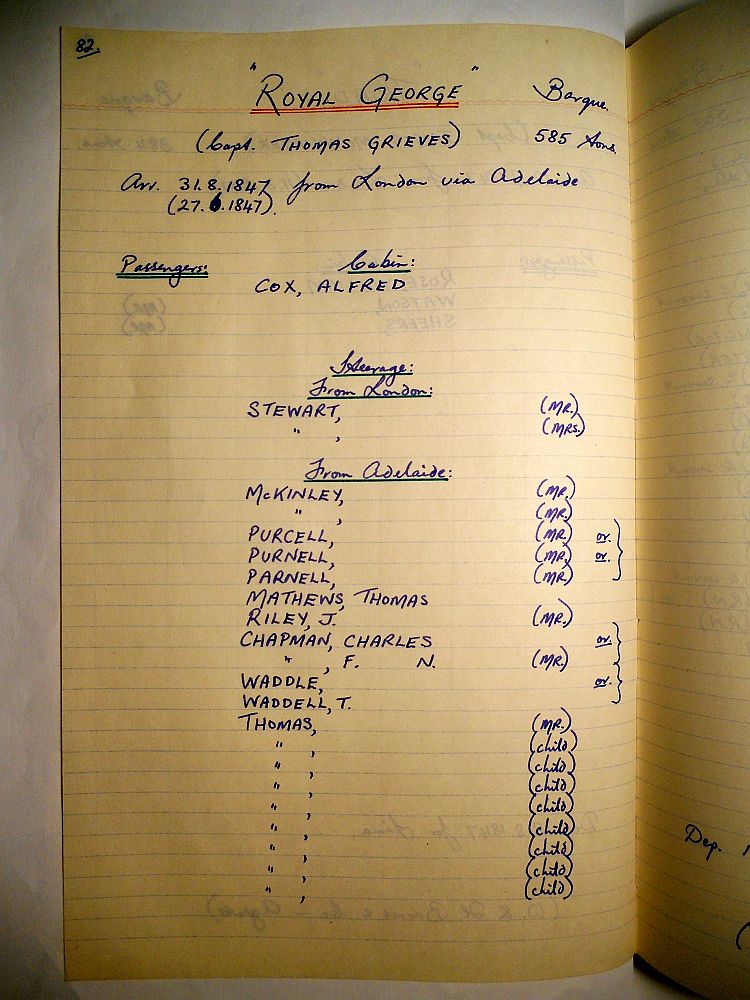 82.
"ROYAL GEORGE" Barque.
(Capt. THOMAS GRIEVES) 585 tons.
Arr. 31.8.1847 from London via Adelaide
(27.6.1847).
Passengers: Cabin:
COX, ALFRED
Steerage:
From London:
STEWART, (MR.)
" , (MRS.)
From Adelaide:
McKINLEY, (MR.)
" , (MR.)
PURCELL, (MR.) or.
PURNELL, (MR.) or.
PARNELL, (MR.)
MATHEWS, THOMAS
RILEY, J. (MR.)
CHAPMAN, CHARLES or.
" , F. N. (MR.)
WADDLE, or.
WADDELL, T.
THOMAS, (MR.)
" , (child)
" , (child)
" , (child)
" , (child)
" , (child)
" , (child)
" , (child)
" , (child)
Dep.